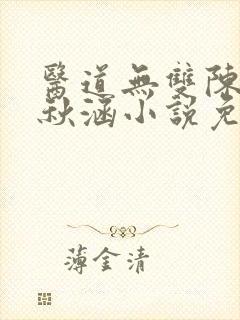 醫道無雙陳
秋涵小說免
薄金清